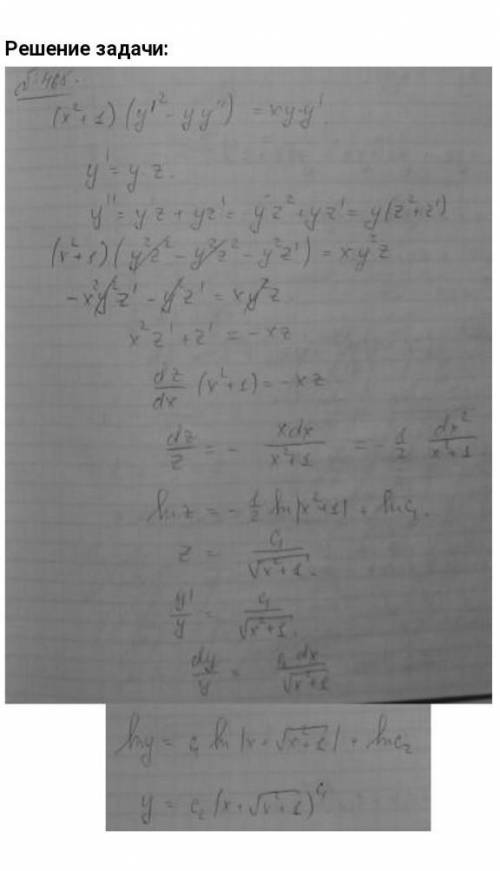 Решение задачи:
№ 465.
(x²+1)(y'² - yy'') = xy·y'.
y' = yz.
y'' = y'z + yz' = yz² + yz' = y(z²+z')
(x²+1)(y²z² - y²z² - y²z') = xy²z
-x²y²z' - y²z' = xy²z
x²z' + z' = -xz
dz/dx (x²+1) = -xz
dz/z = - xdx/x²+1 = - 1/2 dx²/x²+1
ln z = - 1/2 ln|x²+1| + ln c₁.
z = c₁/√x²+1.
y'/y = c₁/√x²+1.
dy/y = c₁dx/√x²+1
ln y = c₁ ln|x+√x²+1| + ln c₂
y = c₂(x+√x²+1)^c₁